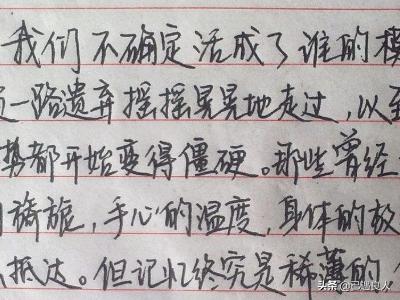 我们不确定活成了谁的模
一路遗弃摇摇晃晃地走过，以至
势都开始变得僵硬。那些曾经
旖旎，手心的温度，身体的放
抵达。但记忆终究是稀薄的
头条 @已遇良人